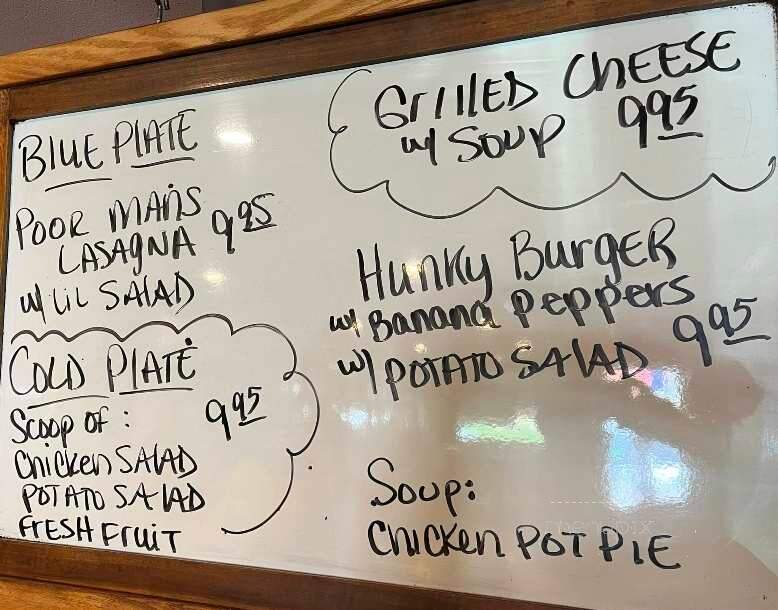 BLUE PLATE
POOR MAN'S 9 95
LASAGNA
w/ LIL SALAD
COLD PLATE
SCOOP OF: 9 95
CHICKEN SALAD
POTATO SALAD
FRESH FRUIT
GRILLED CHEESE
w/ SOUP 9 95
HUNKY BURGER
w/ BANANA PEPPERS
w/ POTATO SALAD 9 95
SOUP:
CHICKEN POT PIE